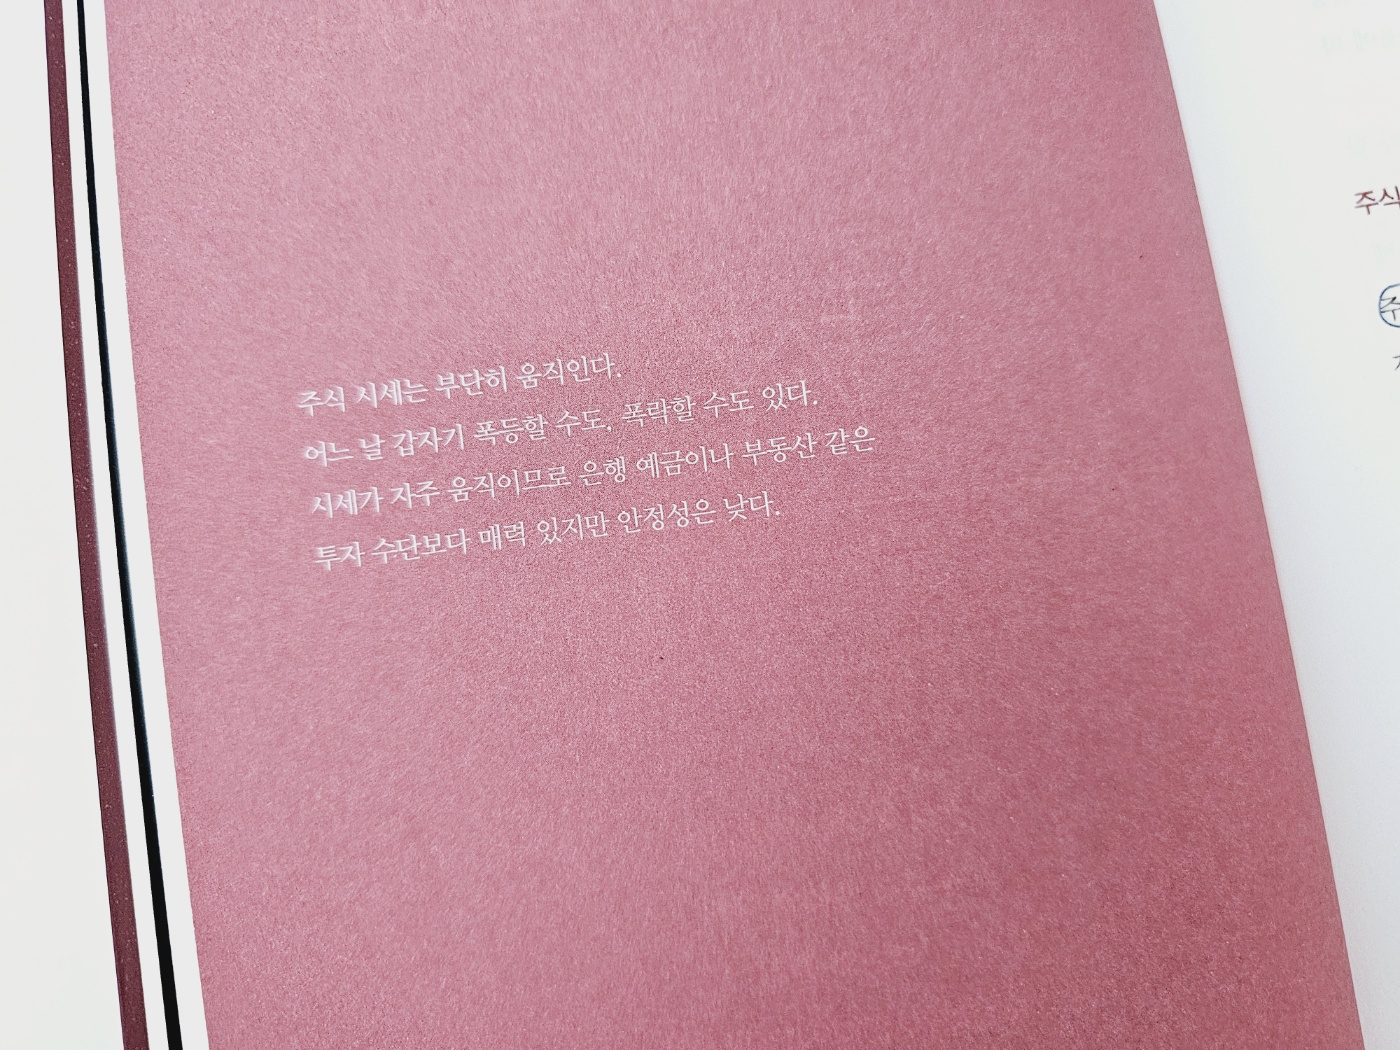 주식 시세는 부단히 움직인다.
어느 날 갑자기 폭등할 수도, 폭락할 수도 있다.
시세가 자주 움직이므로 은행 예금이나 부동산 같은
투자 수단보다 매력 있지만 안정성은 낮다.
주식